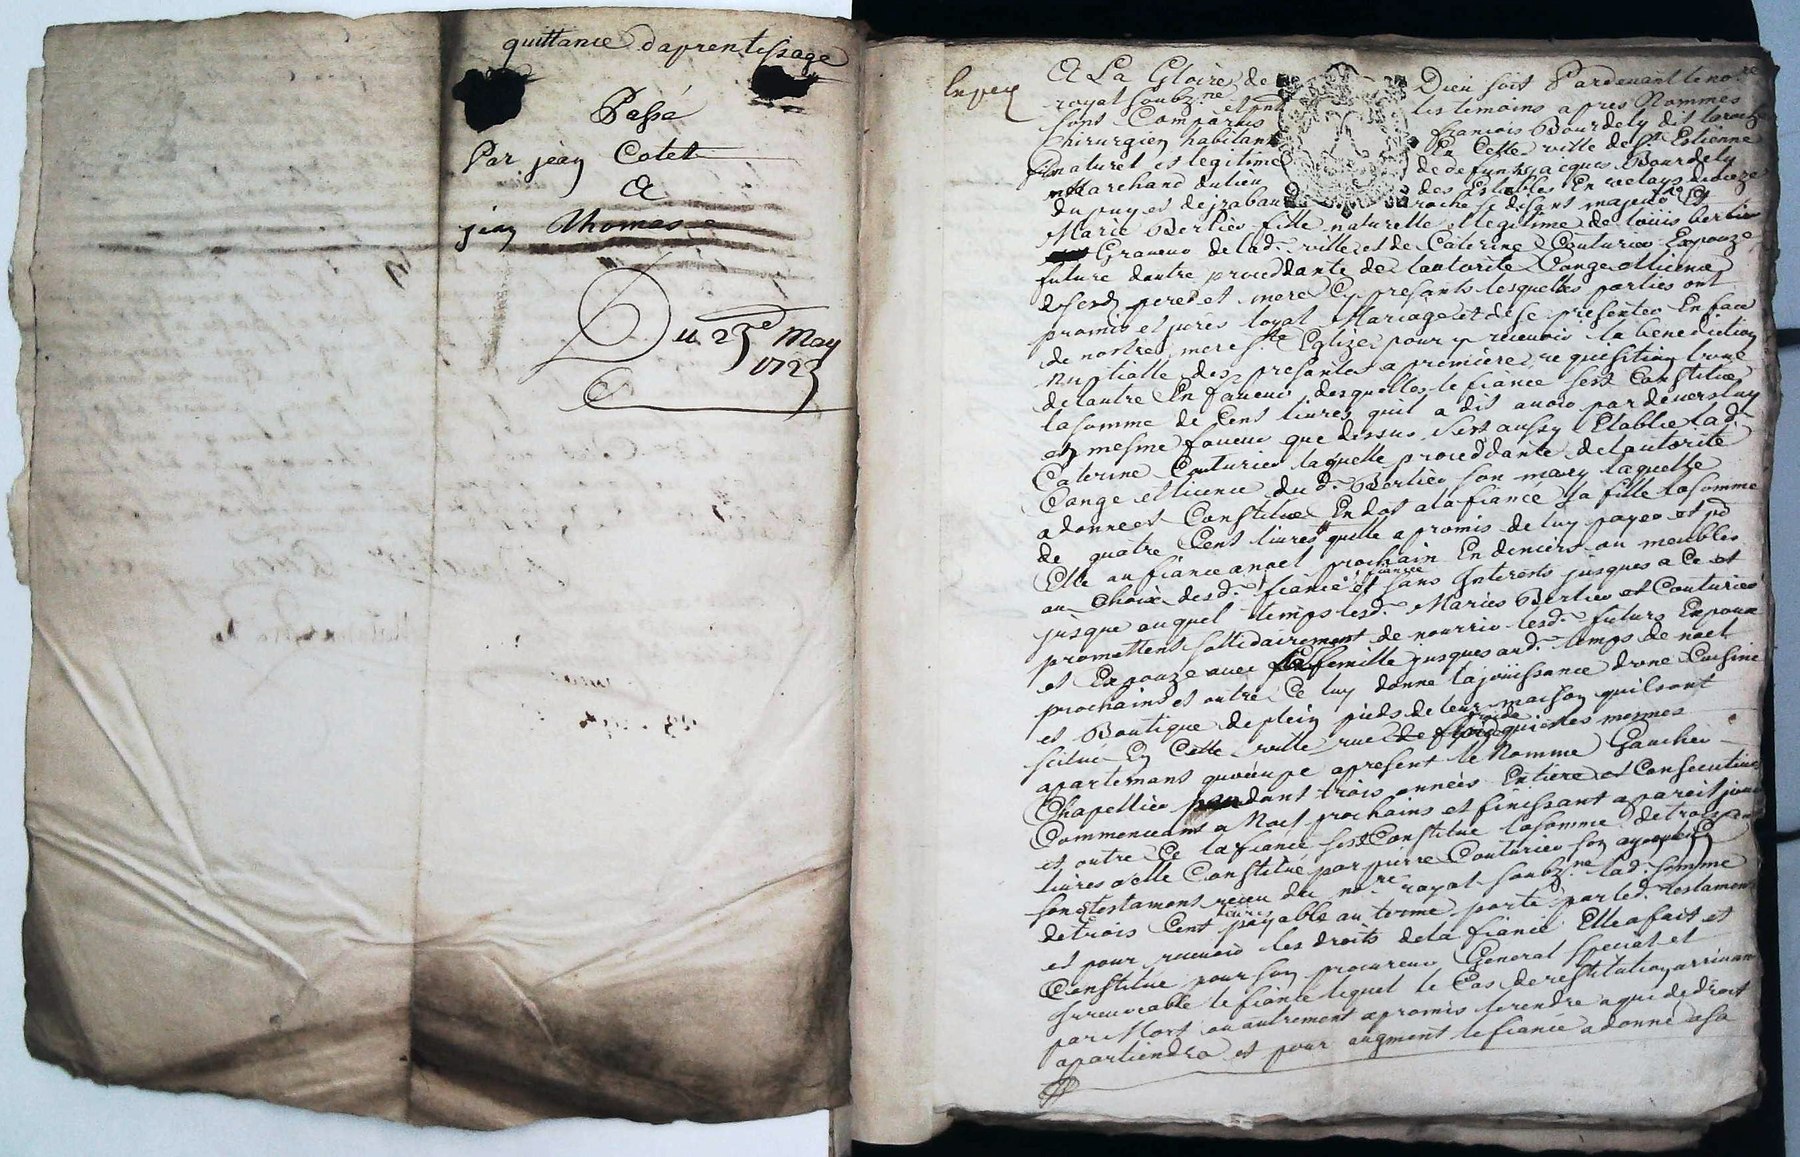 quittance daprentissage
Passé
Par jean Cotet
A
jean Thomas
Du 23e May
1723
A La Gloire de Dieu soit Pardevant le nore
royal soubzne et pnt les temoins apres Nommes
sont Comparus francois Bourdely dit laroche
Chirurgien habitant En Cette ville de St Estienne
fils naturel et legitime de defunt jacques Bourdely
Marchand du lieu des Estables En velay dioceze
du puy et de jzabau roche se disant majeur Et
Marie Berlier fille naturelle et legitime de louis berlier
Graveur de lad. ville et de Caterine Couturier Expouze
future dautre proceddante de lautorité Conge et licence
desesd. pere et mere Cy presants lesquelles parties ont
promis et jurés loyal Mariage et de se presenter En face
de nostre mere Ste Eglize pour y recevoir la benediction
Nuptialle des presantes a premiere requisition lune
de lautre En faveur desquelles le fiancé sest Constitué
la somme de Cent livres quil a dit avoir pardevers luy
et mesme faveur que dessus sest aussy Etablie lad.
Caterine Couturier laquelle proceddante de lautorité
Conge et licence du d. Berlier son mary laquelle
a donné et Constitué En dot a la fiancé sa fille la somme
de quatre Cent livres quelle a promis de luy payer et po
Elle au fiancé a noel prochain En deniers ou meubles
au Choix desd. fiancé et fiancée sans Interests jusques a Ce et
jusque auquel temps lesd. Mariés Berlier et Couturier
promettent sollidairement de nourrir lesd. futurs Expoux
et Expouze avec famille jusques aud. temps de noel
prochains et outre Ce luy donne la jouissance dune Cuisine
et Boutique de plein pieds de leur maison quils ont
scitué En Cette ville rue froide qui est les mesmes
apartemans quoccupe apresent le Nommé Gaucher
Chapellier pendant trois années Entiere et Consecutives
Commencant a Noel prochains et finissant a pareil jour
et outre Ce la fiancé sest Constitué la somme de trois Cent
livres a elle Constitué par pierre Couturier son ayeul En
son testament receu du nore royal soubzne lad. somme
de trois Cent livres payable au terme porté par led. testament
et pour recevoir les droits de la fiancé Elle a fait et
Constitué pour son procureur General special et
Irrevocable le fiancé lequel le Cas de restitution arrivant
par Mort ou autrement a promis le rendre a qui de droit
apartiendra et pour augment le fiancé a donné a sa